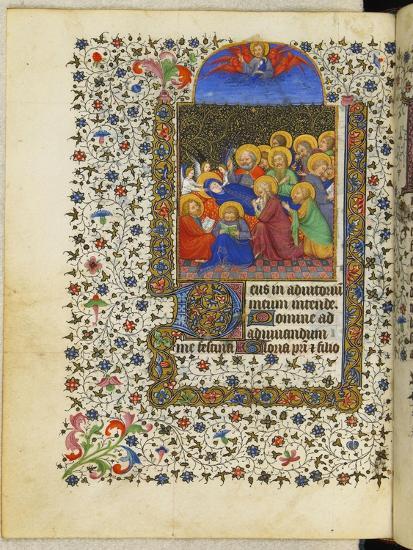 Deus in adiutoriū
meum intende.
Domine ad
adiuuandum
me festina Gloria pri & filio